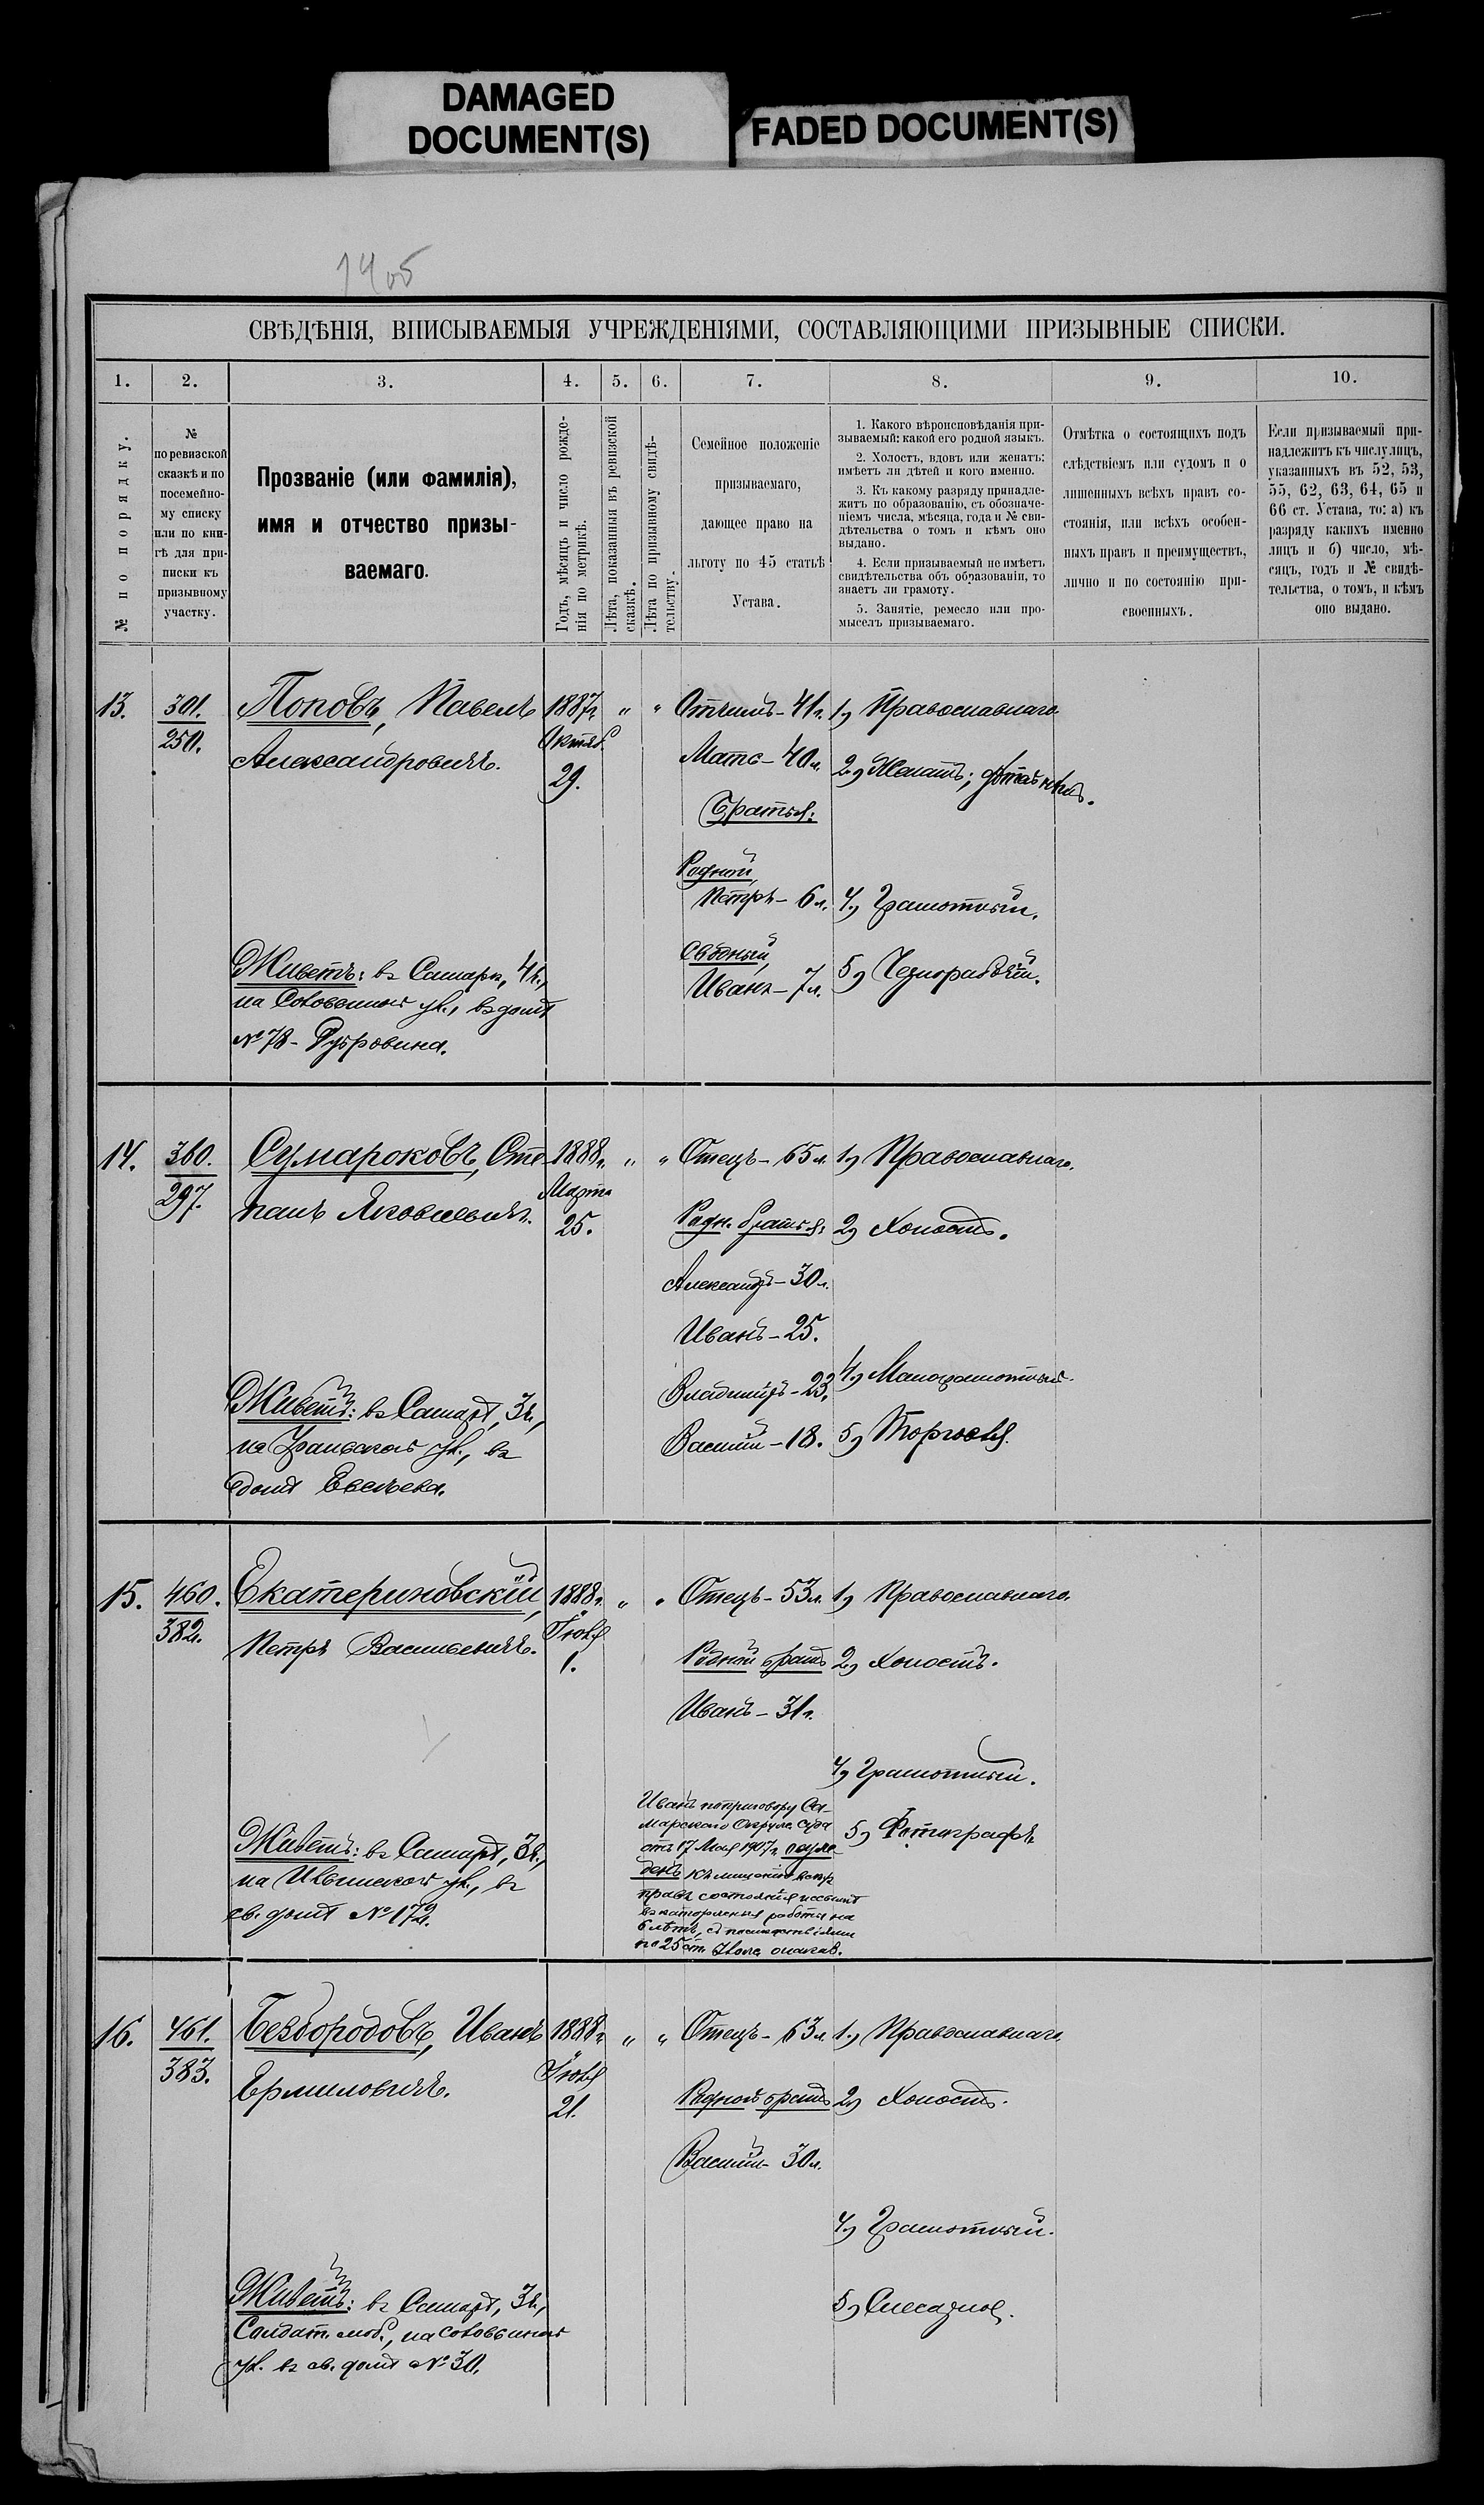 DAMAGED
DOCUMENT(S)
FADED DOCUMENT(S)
СВѢДѢНІЯ, ВПИСЫВАЕМЫЯ УЧРЕЖДЕНІЯМИ, СОСТАВЛЯЮЩИМИ ПРИЗЫВНЫЕ СПИСКИ.
1.
2.
3.
4.
5.
6.
7.
8.
9.
10.
№ по порядку.
№
по ревизской
сказкѣ и по
посемейно-
му списку
или по кни-
гѣ для при-
писки къ
призывному
участку.
Прозваніе (или фамилія),
имя и отчество призы-
ваемаго.
Годъ, мѣсяцъ и число рожде-
нія по метрикѣ.
Лѣта, показанныя въ ревизской
сказкѣ.
Лѣта по призывному свидѣ-
тельству.
Семейное положеніе
призываемаго,
дающее право на
льготу по 45 статьѣ
Устава.
1. Какого вѣроисповѣданія при-
зываемый: какой его родной языкъ.
2. Холостъ, вдовъ или женатъ:
имѣетъ ли дѣтей и кого именно.
3. Къ какому разряду принадле-
житъ по образованію, съ обозначе-
ніемъ числа, мѣсяца, года и № сви-
дѣтельства о томъ и кѣмъ оно
выдано.
4. Если призываемый не имѣетъ
свидѣтельства объ образованіи, то
знаетъ ли грамоту.
5. Занятіе, ремесло или про-
мыселъ призываемаго.
Отмѣтка о состоящихъ подъ
слѣдствіемъ или судомъ и о
лишенныхъ всѣхъ правъ со-
стоянія, или всѣхъ особен-
ныхъ правъ и преимуществъ,
лично и по состоянію при-
своенныхъ.
Если призываемый при-
надлежитъ къ числу лицъ,
указанныхъ въ 52, 53,
55, 62, 63, 64, 65 и
66 ст. Устава, то: а) къ
разряду какихъ именно
лицъ и б) число, мѣ-
сяцъ, годъ и № свидѣ-
тельства, о томъ, и кѣмъ
оно выдано.
13.
301.
250.
Поповъ, Павелъ
Александровичъ.
Живетъ: въ Самарѣ, 4 ч.,
на Соловьиной ул., въ домѣ
№ 78 -
1887 г.
Октяб.
29.
" "
Отчимъ - 41 г.
Мать - 40 л.
Братья:
Родной,
Петръ - 6 л.
Сводный,
Иванъ - 7 л.
1) Православнаго
2) Женатъ; дѣтей нѣтъ.
4) Грамотный.
5) Чернорабочій.
14.
360.
297.
Сумароковъ, Сте-
панъ Яковлевичъ.
Живетъ: въ Самарѣ, 3 ч.,
на Уральской ул., въ
домѣ
1888 г.
Марта
25.
" "
Отецъ - 65 л.
Родн. братья:
Александръ - 30 л.
Иванъ - 25.
Владиміръ - 23.
Василій - 18.
1) Православнаго.
2) Холостъ.
4) Малограмотный.
5) Торговля.
15.
460.
382.
Екатериновскій,
Петръ Васильевичъ.
Живетъ: въ Самарѣ, 3 ч.,
на Ильинской ул., въ
св. домѣ № 172.
1888 г.
Іюля
1.
" "
Отецъ - 53 л.
Родной братъ
Иванъ - 31 г.
Иванъ по приговору Са-
марскаго Окружн. Суда
отъ 17 Мая 1907 г. осуж-
денъ къ лишенію всѣхъ
правъ состоянія и ссылкѣ
въ каторжныя работы на
6 лѣтъ, съ послѣдствіями
по 25 ст. Улож. о наказ.
1) Православнаго.
2) Холостъ.
4) Грамотный.
5) Фотографъ.
16.
461.
383.
Безбородовъ, Иванъ
Ермиловичъ.
Живетъ: въ Самарѣ, 3 ч.,
Солдат. слоб., на Соловьиной
ул. въ св. домѣ № 30.
1888 г.
Іюля
21.
" "
Отецъ - 63 л.
Родной братъ
Василій - 30 л.
1) Православнаго
2) Холостъ.
4) Грамотный.
5) Слесарное.